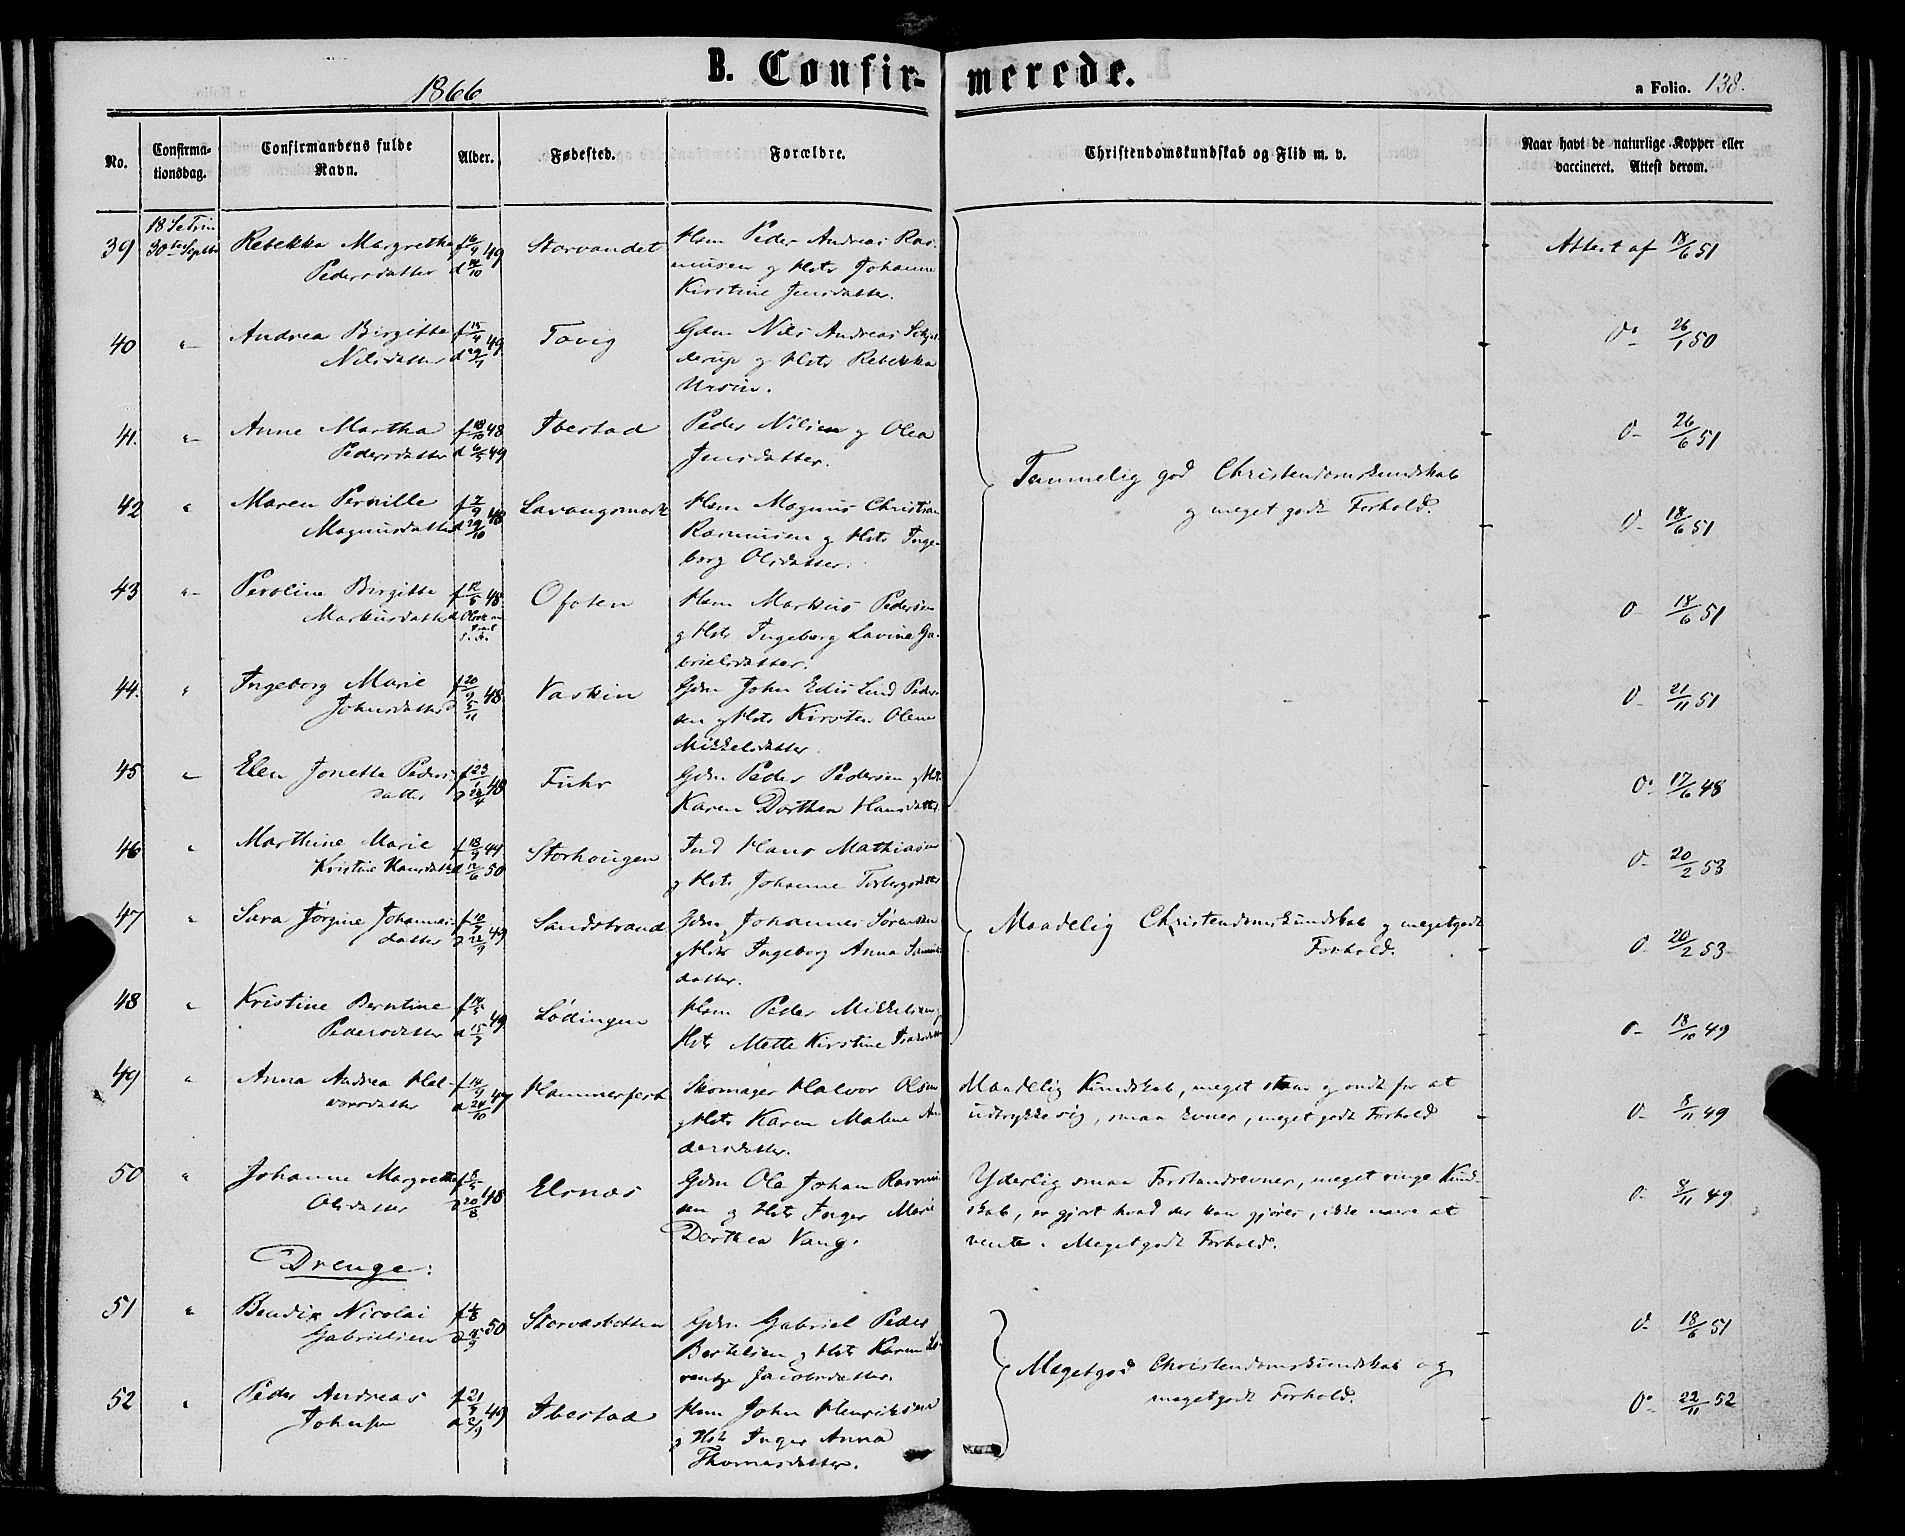 B. Confir- merede.
1866
a Folio. 138.
No.
Confirma-
tionsdag.
Confirmandens fulde
Navn.
Alder.
Fødested.
Forældre.
Christendomskundskab og Flid m. v.
Naar havt de naturlige Kopper eller
vaccineret. Attest derom.
39 18 S e Trin 30te Septbr Rebekka Margrethe Pedersdatter f 16/9 49 d 14/10 Storvandet
Hsm Peder Andreas Ras-
musen og Hstr Johanne
Kirstine Jensdatter.
Attest af 18/6 51
40 " Andrea Birgitte Nilsdatter f 15/4 49 d 29/4 Tovig
Gdm Nils Andreas Schjel-
derup og Hstr Rebekka
Ursin.
Do 26/1 50
41. " Anne Martha Pedersdatter f 18/10 48 d 6/5 49 Ibestad
Peder Nilsen og Olea
Jensdatter.
D- 26/6 51
Temmelig god Christendomskundskab
og meget godt Forhold.
42 " Maren Pernille Magnusdatter f 7/9 48 d 29/10 Lavangsmark
Hsm Magnus Christian
Rasmusen og Hstr Inge-
borg Olsdatter.
D- 18/6 51
43 " Peroline Birgitte Markusdatter f 12/5 48 Ofoten
Hsm Markus Pedersen
og Hstr Ingeborg Lavine Ga-
brielsdatter.
D- 18/6 51
44. " Ingeborg Marie Johnsdatter f 20/9 48 d 5/11 Vaskin
Gdm John Edis Lind Peder-
sen og Hstr Kirsten Olene
Mikkelsdatter
D- 21/11 51
45 " Elen Jonette Peders-
datter f 23/1 48 Fuhr
Gdm Peder Pedersen og Hstr
Karen Dorthea Hansdatter
Do 17/6 48
46 " Marthine Marie Kristine Hansdatter f 18/9 49 d 12/6 50 Storhougen
Ind Hans Mathiasen
og Hstr Johanne Torbergsdatter
D- 20/2 53
47 " Sara Jørgine Johannes-
datter f 10/9 49 d 23/9 Sandstrand
Gdm Johannes Sørensen
og Hstr Ingeborg Anna
datter.
D- 20/2 53
Maadelig Christendomskundskab og megetgodt
Forhold.
48 " Kristine Berntine Pedersdatter 49 d 15/7 Lødingen
Hsm Peder Mikkelsen og
Hstr Mette Kirstine Isaksdatter
D- 18/10 49
49 " Anna Andrea Hal-
vorsdatter f 14/9 47 d 24/10 Hammerfest
Skomager Halvor Olsen
og Hstr Karen Malene An-
dersdatter.
Maadelig Kundskab, meget og ondt for at
udtrykke sig, smaa Evner, meget godt Forhold
D- 8/11 49
50 " Johanne Margrethe Olsdatter f 8/5 48 d 20/8 Elsnæs
Gdm Ole Johan Rasmu-
sen og Hstr Inger Marie
Dorthea Vang.
Yderlig smaa Forstandsevner, meget ringe Kund-
skab, er gjort hvad der kan gjøres, ikke mere at
vente. Megetgodt Forhold.
D- 8/11 49
Drenge:
51 " Bendix Nicolai Gabrielsen f 4/8 50 d 15/9 Storvasbotten
Gdm Gabriel Peder
Bertelsen og Hstr Karen Lo-
rentze Jacobsdatter.
D- 18/6 51
Megetgod Christendomskundskab og
megetgodt Forhold.
52 " Peder Andreas Johnsen f 21/8 49 d 2/9 Ibestad
Hsm John Henriksen
og Hstr Inger Anna
Thomasdatter.
Do 22/11 52